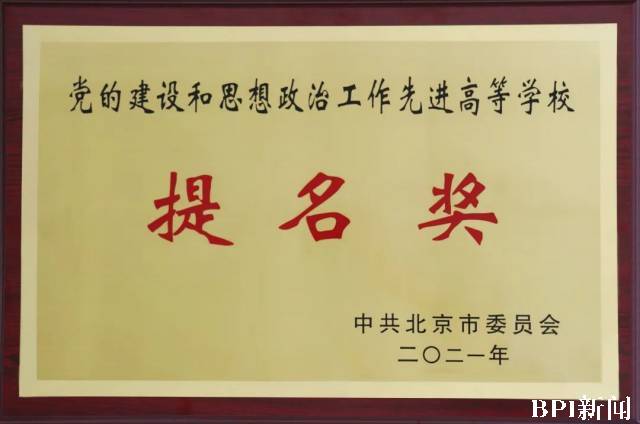 党的建设和思想政治工作先进高等学校
提名奖
中共北京市委员会
二〇二一年
BPI新闻